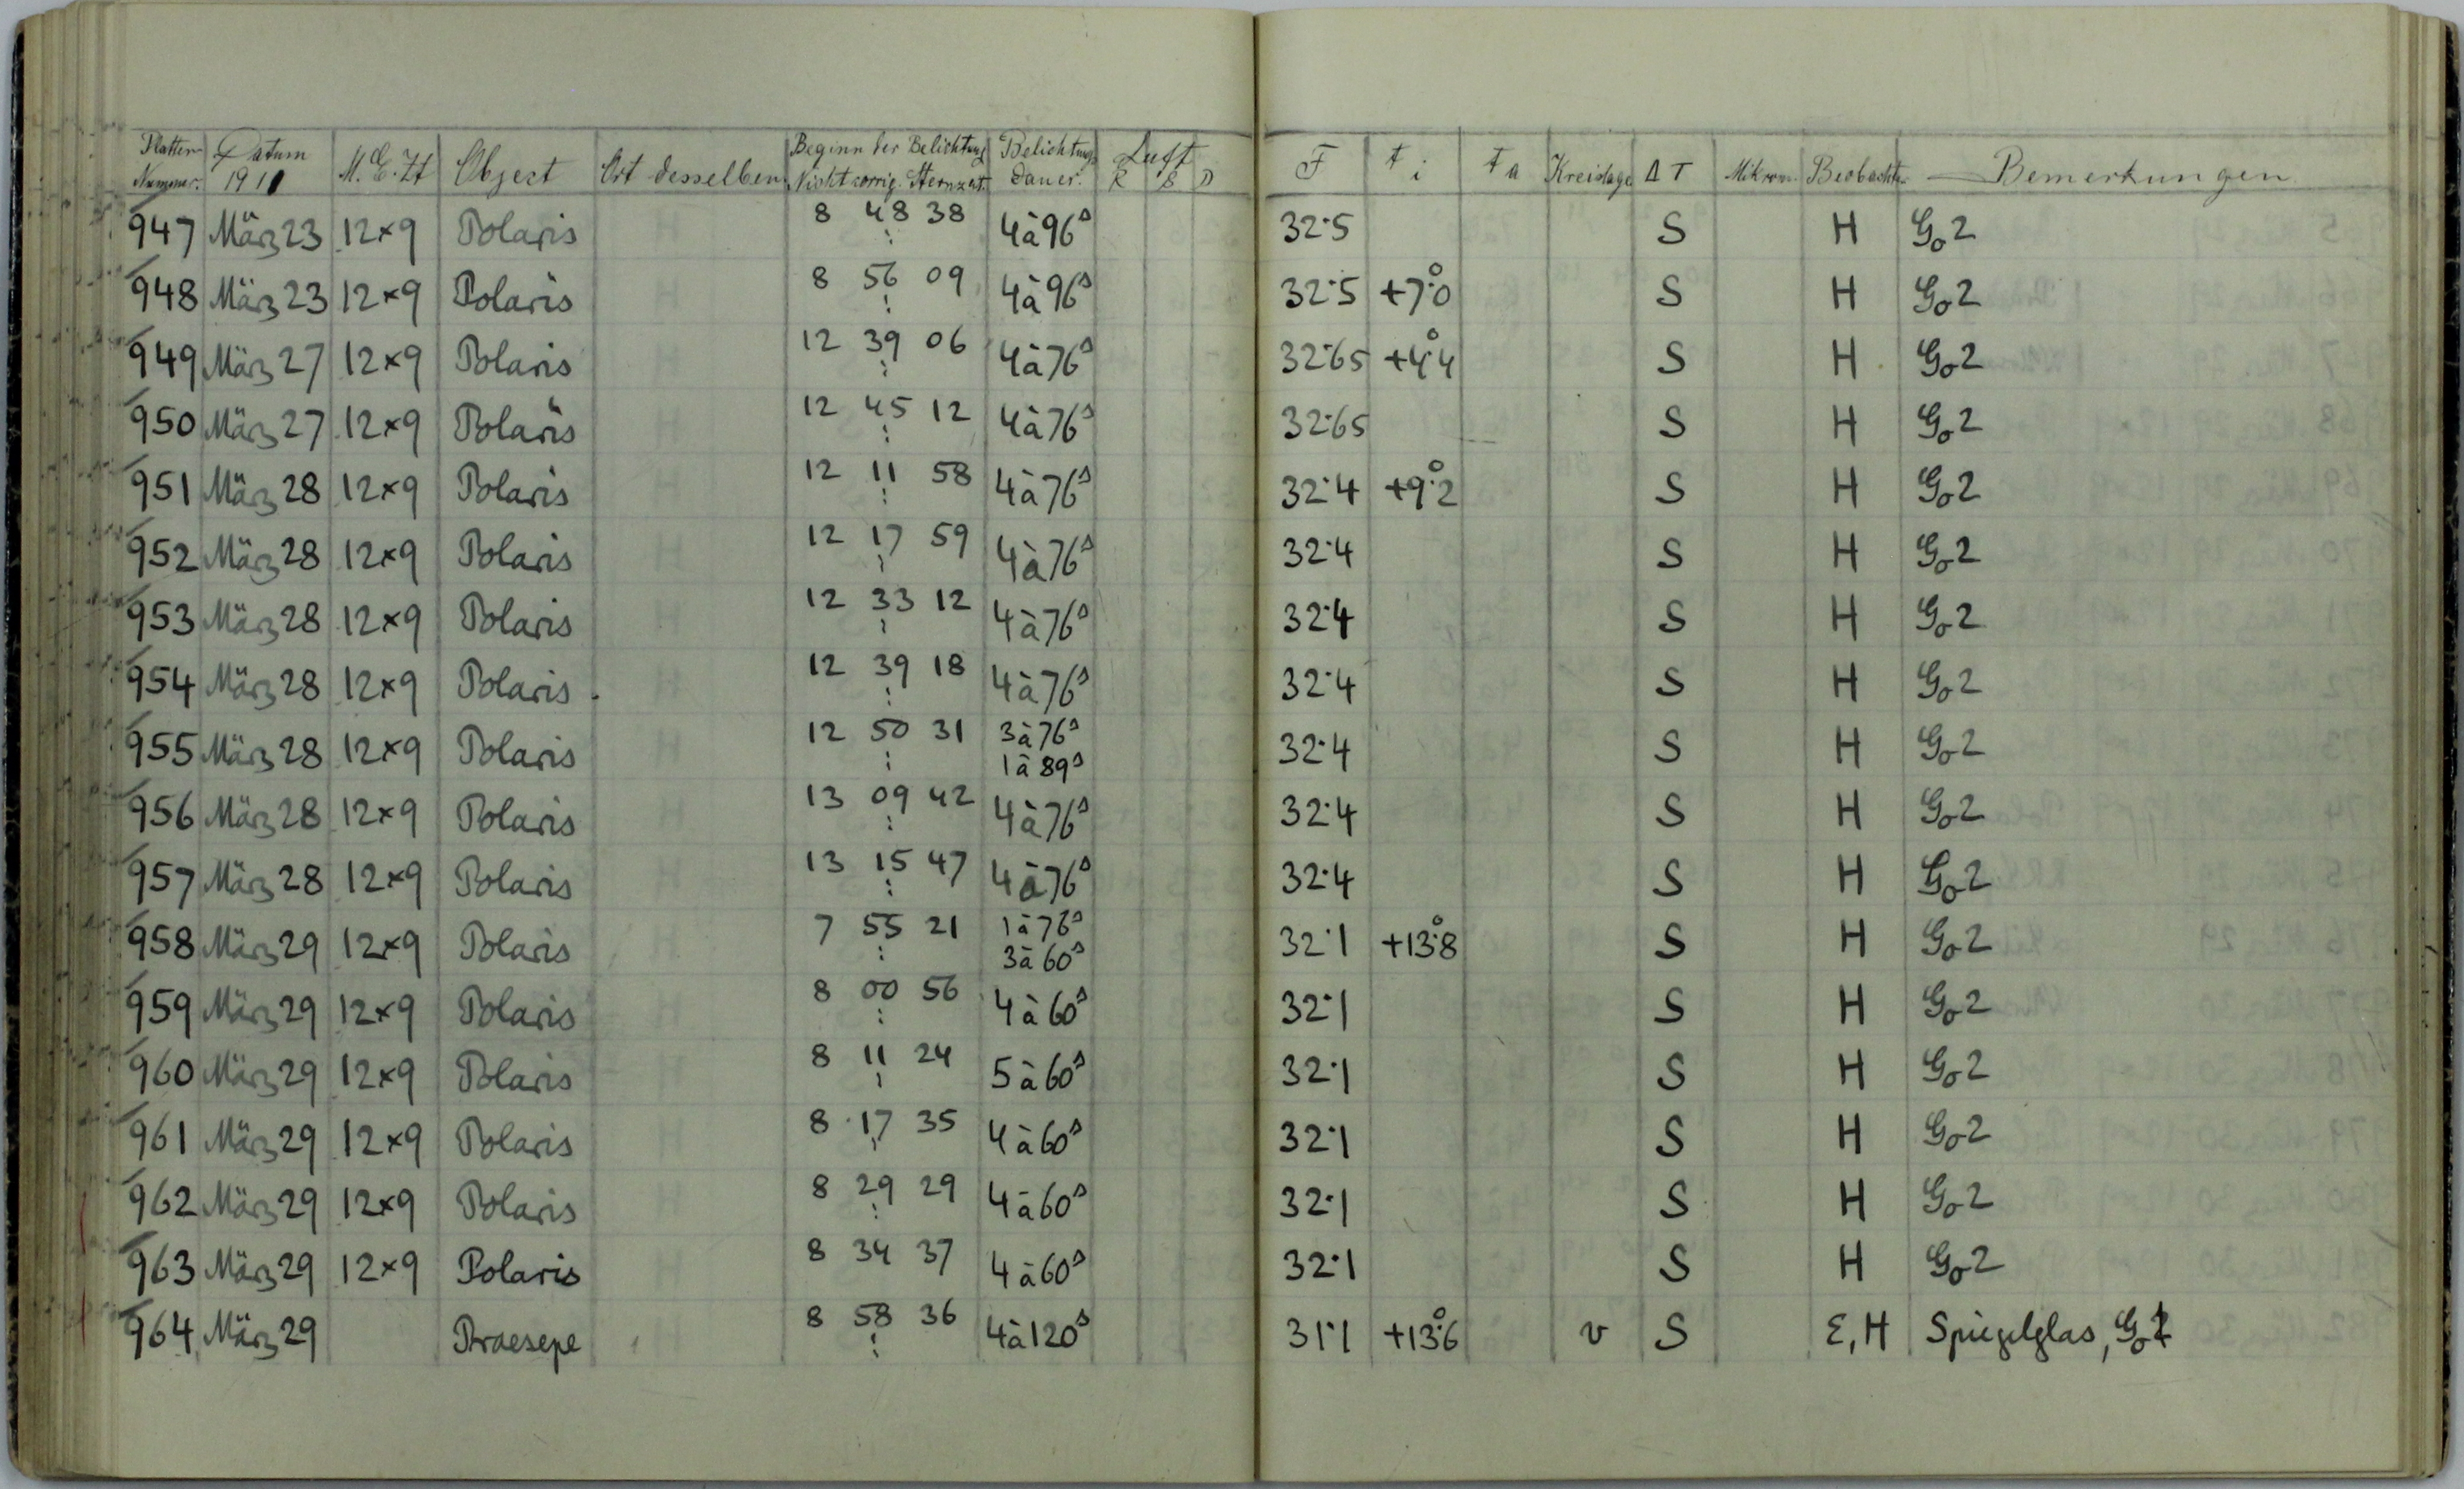 Platten-Nummer. Datum 1911 M.E.Zt Object Ort desselben Beginn der Belichtung Nicht corrig. Sternzeit. Belichtungs dauer. Luft R S D F t i t a Kreislage Δ T Mikrom. Beobachter Bemerkungen
947 März 23 12×9 Polaris 8 48 38 4à96s 32.5 S H Go2
948 März 23 12×9 Polaris 8 56 09 4à96s 32.5 +7°.0 S H Go2
949 März 27 12×9 Polaris 12 39 06 4à76s 32.65 +4°.4 S H Go2
950 März 27 12×9 Polaris 12 45 12 4à76s 32.65 S H Go2
951 März 28 12×9 Polaris 12 11 58 4à76s 32.4 +9°.2 S H Go2
952 März 28 12×9 Polaris 12 17 59 4à76s 32.4 S H Go2
953 März 28 12×9 Polaris 12 33 12 4à76s 32.4 S H Go2
954 März 28 12×9 Polaris 12 39 18 4à76s 32.4 S H Go2
955 März 28 12×9 Polaris 12 50 31 3à76s 1à89s 32.4 S H Go2
956 März 28 12×9 Polaris 13 09 42 4à76s 32.4 S H Go2
957 März 28 12×9 Polaris 13 15 47 4à76s 32.4 S H Go2
958 März 29 12×9 Polaris 7 55 21 1à76s 3à60s 32.1 +13°.8 S H Go2
959 März 29 12×9 Polaris 8 00 56 4à60s 32.1 S H Go2
960 März 29 12×9 Polaris 8 11 24 5à60s 32.1 S H Go2
961 März 29 12×9 Polaris 8 17 35 4à60s 32.1 S H Go2
962 März 29 12×9 Polaris 8 29 29 4à60s 32.1 S H Go2
963 März 29 12×9 Polaris 8 34 37 4à60s 32.1 S H Go2
964 März 29 Praesepe 8 58 36 4à120s 31.1 +13°.6 v S Σ, H Spiegelglas,